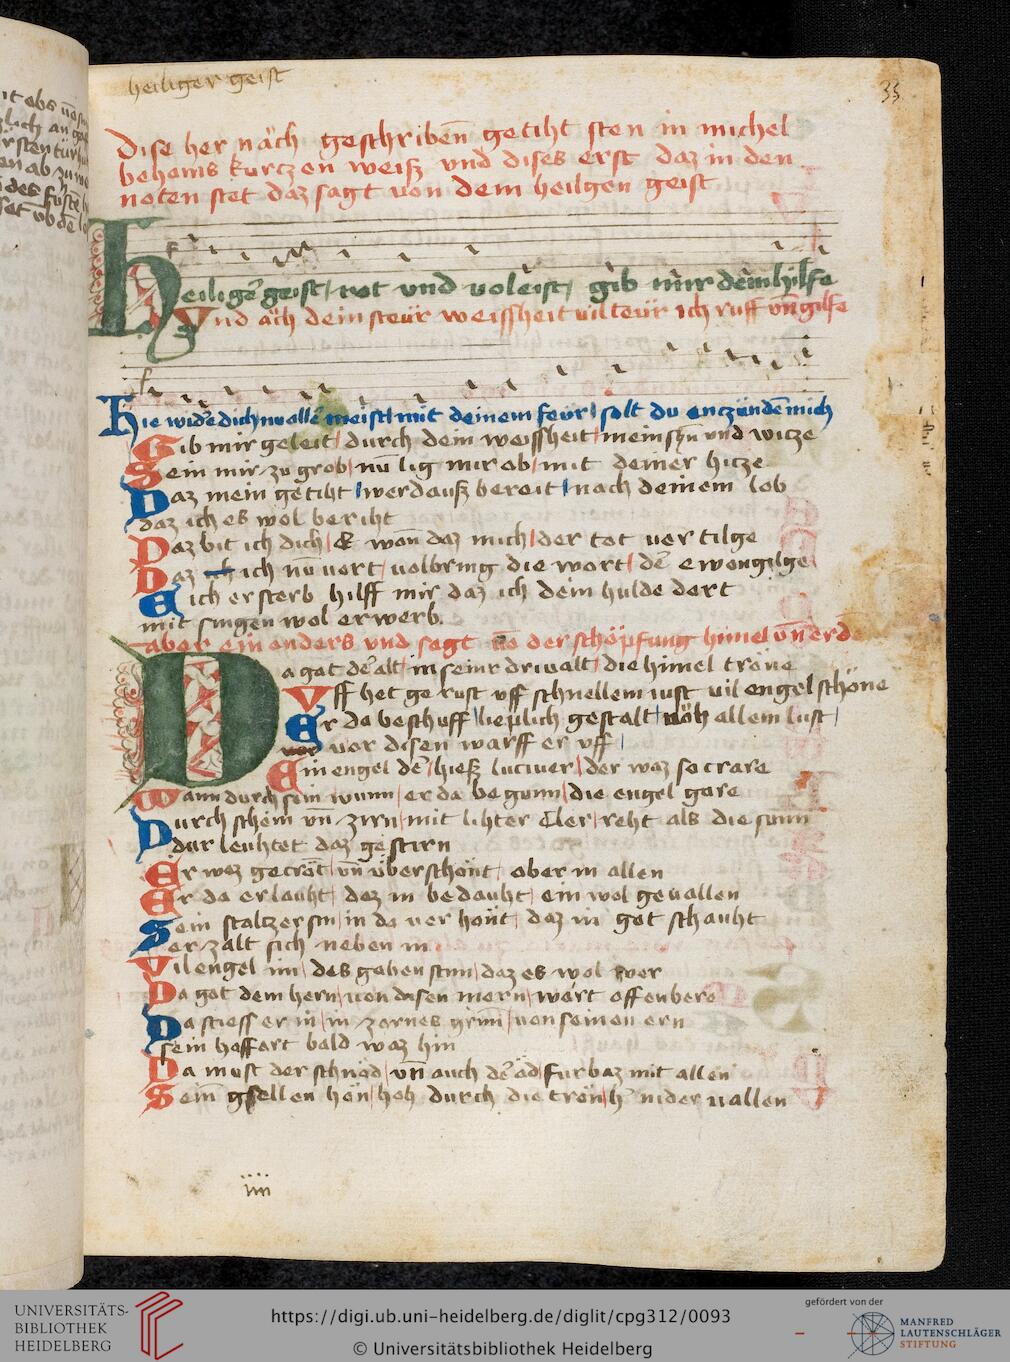 heiliger geist
33
Dise her nǎch geschriben̄ getiht sten in michel
behems kurczen weiß vnd dises erst daz in den
noten stet daz sagt von dem heilgen geist
Heiligē geist / rot vnd voleist / gib mir dein hilfe
Vnd ǎch dein steür weissheit vil teür ich ruff vn̄ gilfe
Hie wider dich meist / mit deinem feür / solt du enczünden mich
Gib mir geleit / durch dein weissheit / mein syn vnd wicze
Sein mir zu grob / nū lig mir ob / mit deiner hicze
Daz mein getiht / werd auß bereit / nach deinem lob
daz ich es wol beriht
Daz bit ich dich / wan daz mich / der tot ver tilge
Daz ich nū vort / volbring die wort / dē ewangilge
E ich ersterb hilff mir daz ich dein hulde dort
mit singen wol erwerb.
aber ein anders vnd sagt vō der schöpfung himel vn̄ erd
Da got dē alt / in seinr driualt / die himel tröne
Vff het gerust vff schnellem iust vil engel schöne
Er da beschuff / lieplich gestalt / allem lust /
vor disen warff er vff /
Ein engel dē / hieß luciuer / der waz so crare
Wann durch sein wunn / er da begunn / die engel gare
Durch schein vn̄ zirn / mit lihter Cler / reht als die sunn
dar leuhtet daz gestirn
Er waz gecrönt / vn̄ überschönt / ober in allen
Er da erlauht / daz in bedauht / ein wol geuallen
Sein stalczer sin / in da ver hönt / daz in got schauht
er zalt sich neben in
Vil engel im / des gaben stim / daz es wol wer
Da got dem hern / von disen mern / wart offenbere
Da stiess er in / in zornes grim / von seinen ern
sein hoffart bald waz hin
Da must der schnöd / vn̄ auch dē öd / furbaz mit allen
Sein gsellen hön / hoh durch die trön / nider vallen
iiii
UNIVERSITÄTS-
BIBLIOTHEK
HEIDELBERG
https://digi.ub.uni-heidelberg.de/diglit/cpg312/0093
© Universitätsbibliothek Heidelberg
gefördert von der
MANFRED
LAUTENSCHLÄGER
STIFTUNG